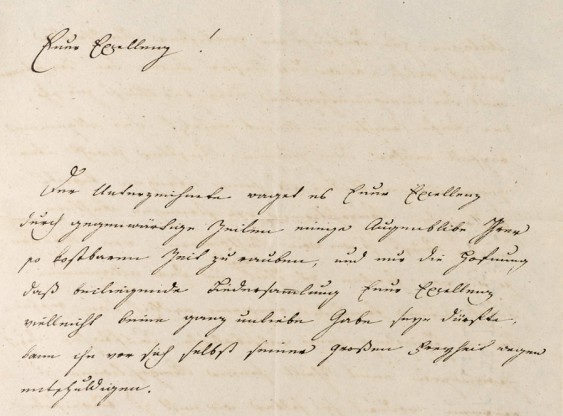 Euer Excellenz !
Der Unterzeichnete waget es Euer Excellenz
durch gegenwärtige Zeilen einige Augenblike Ihrer
so kostbaren Zeit zu rauben, und nur die Hofnung
daß beiliegende Liedersammlung Euer Excellenz
vielleicht keine ganz unliebe Gabe seyn dürfte,
kann ihn vor sich selbst seiner großen Freyheit wegen
entschuldigen.